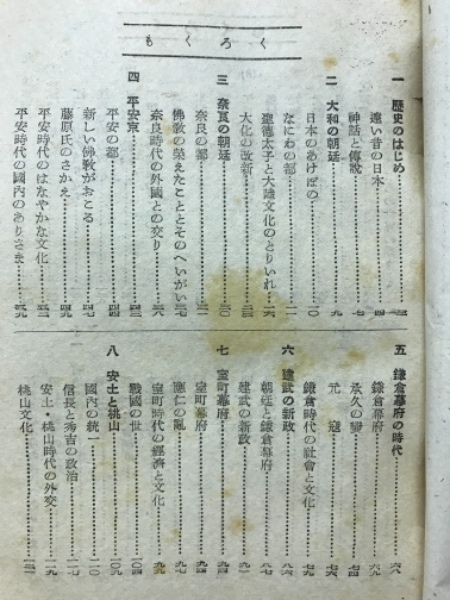 もくろく
一 歴史のはじめ
遠い昔の日本
神話と傳說 四
二 大和の朝廷 九
日本のあけぼの 一〇
なにわの都 一一
聖德太子と大陸文化のとりいれ 一六
大化の改新
三 奈良の朝廷 三〇
奈良の都
佛敎の榮えたこととそのへいがい
奈良時代の外國との交り
四 平安京
平安の都
新しい佛敎がおこる 四七
藤原氏のさかえ 四九
平安時代のはなやかな文化
平安時代の國內のありさま
五 鎌倉幕府の時代 六八
鎌倉幕府 六九
承久の變 七四
元寇 七六
鎌倉時代の社會と文化 七九
六 建武の新政 八六
朝廷と鎌倉幕府 八七
建武の新政 九一
七 室町幕府 九四
室町幕府 九四
應仁の亂 九七
室町時代の經濟と文化 九九
戰國の世 一〇四
八 安土と桃山 一〇九
國內の統一 一一〇
信長と秀吉の政治 一一七
安土・桃山時代の外交 一一九
桃山文化